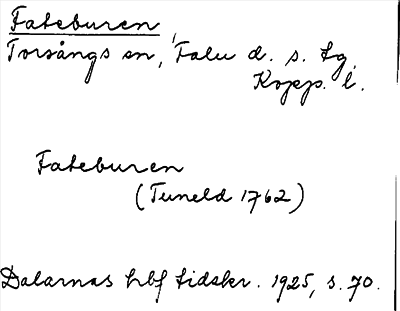 Fateburen,
Torsångs sn, Falu d. s. tg.
Kopp. l.
Fateburen
(Tuneld 1762)
Dalarnas hbf tidskr. 1925, s. 70.